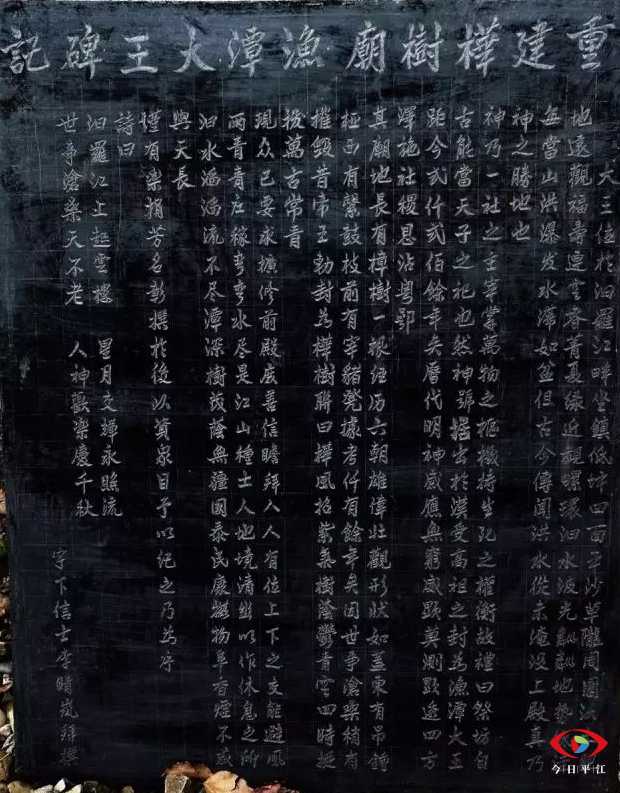 重建樺樹廟漁潭大王碑記
大王位於汨羅江畔坐鎮低坪四百平沙草隴周圍
地遠觀福壽連雲容菁夏綠近觀螺環汨水波光
每當山洪瀑发水漲如盆但古今傳聞洪水從未淹没上殿真乃
神之勝地也
神乃一社之主宰掌萬物之樞機持生死之權衡故禮曰祭坊自
古能當天子之祀也然神號招出於漢受高祖之封為漁潭大王
距今弍仟弍佰餘年矣曆代明神感應無窮威顯莫測默逵四方
澤施社稷恩沾粵鄂
其廟地長有樺樹一根经历六朝雄偉壮觀形狀如盖東有吊鍾
極西有繫鼓枝前有宰豬凳據考仟有餘年矣因世事滄桑稍有
摧毀昔帝王勅封為樺樹聯曰樺風招紫氣樹蔭鬱青雲四時挺
拔萬古常青
現众已要求擴修前殿庶善信瞻拜人人有位上下之支能避風
雨青青庄稼弯弯水尽是江山種士人地境清幽以作休息之所
汨水滔滔流不尽潭深樹茂蔭無疆國泰民康物阜香煙不
與天長
僅有樂捐芳名彰撰於後以資眾目予以纪之乃為序
詩曰
汨羅江上起雲樓 星月交輝永照流
世事滄桑天不老 人神歡樂慶千秋
宇下信士李晴嵐拜撰
今日平江